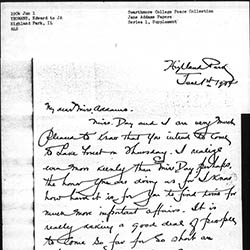 1904 Jun 1
YEOMANS, Edward to JA
Highland Park, IL
ALS
Swarthmore College Peace Collection
Jane Addams Papers
Series 1, Supplement
Highland Park
June 1st 1904
My dear Miss Addams.
Miss Day and I are very much
pleased to hear that you intend to come
to Lake Forest on Thursday. I realize
even more keenly than Miss Day perhaps,
the honor you are doing us, as I know
how hard it is for you to find time for
much more important affairs. It is
really asking a good deal of people
to come so far for so short an